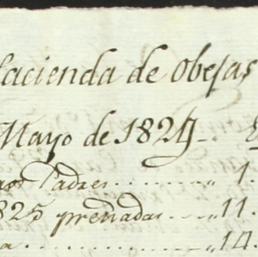 Hacienda de obejas
Mayo de 1829
Padres 1.
1825 preñadas 11.
14.